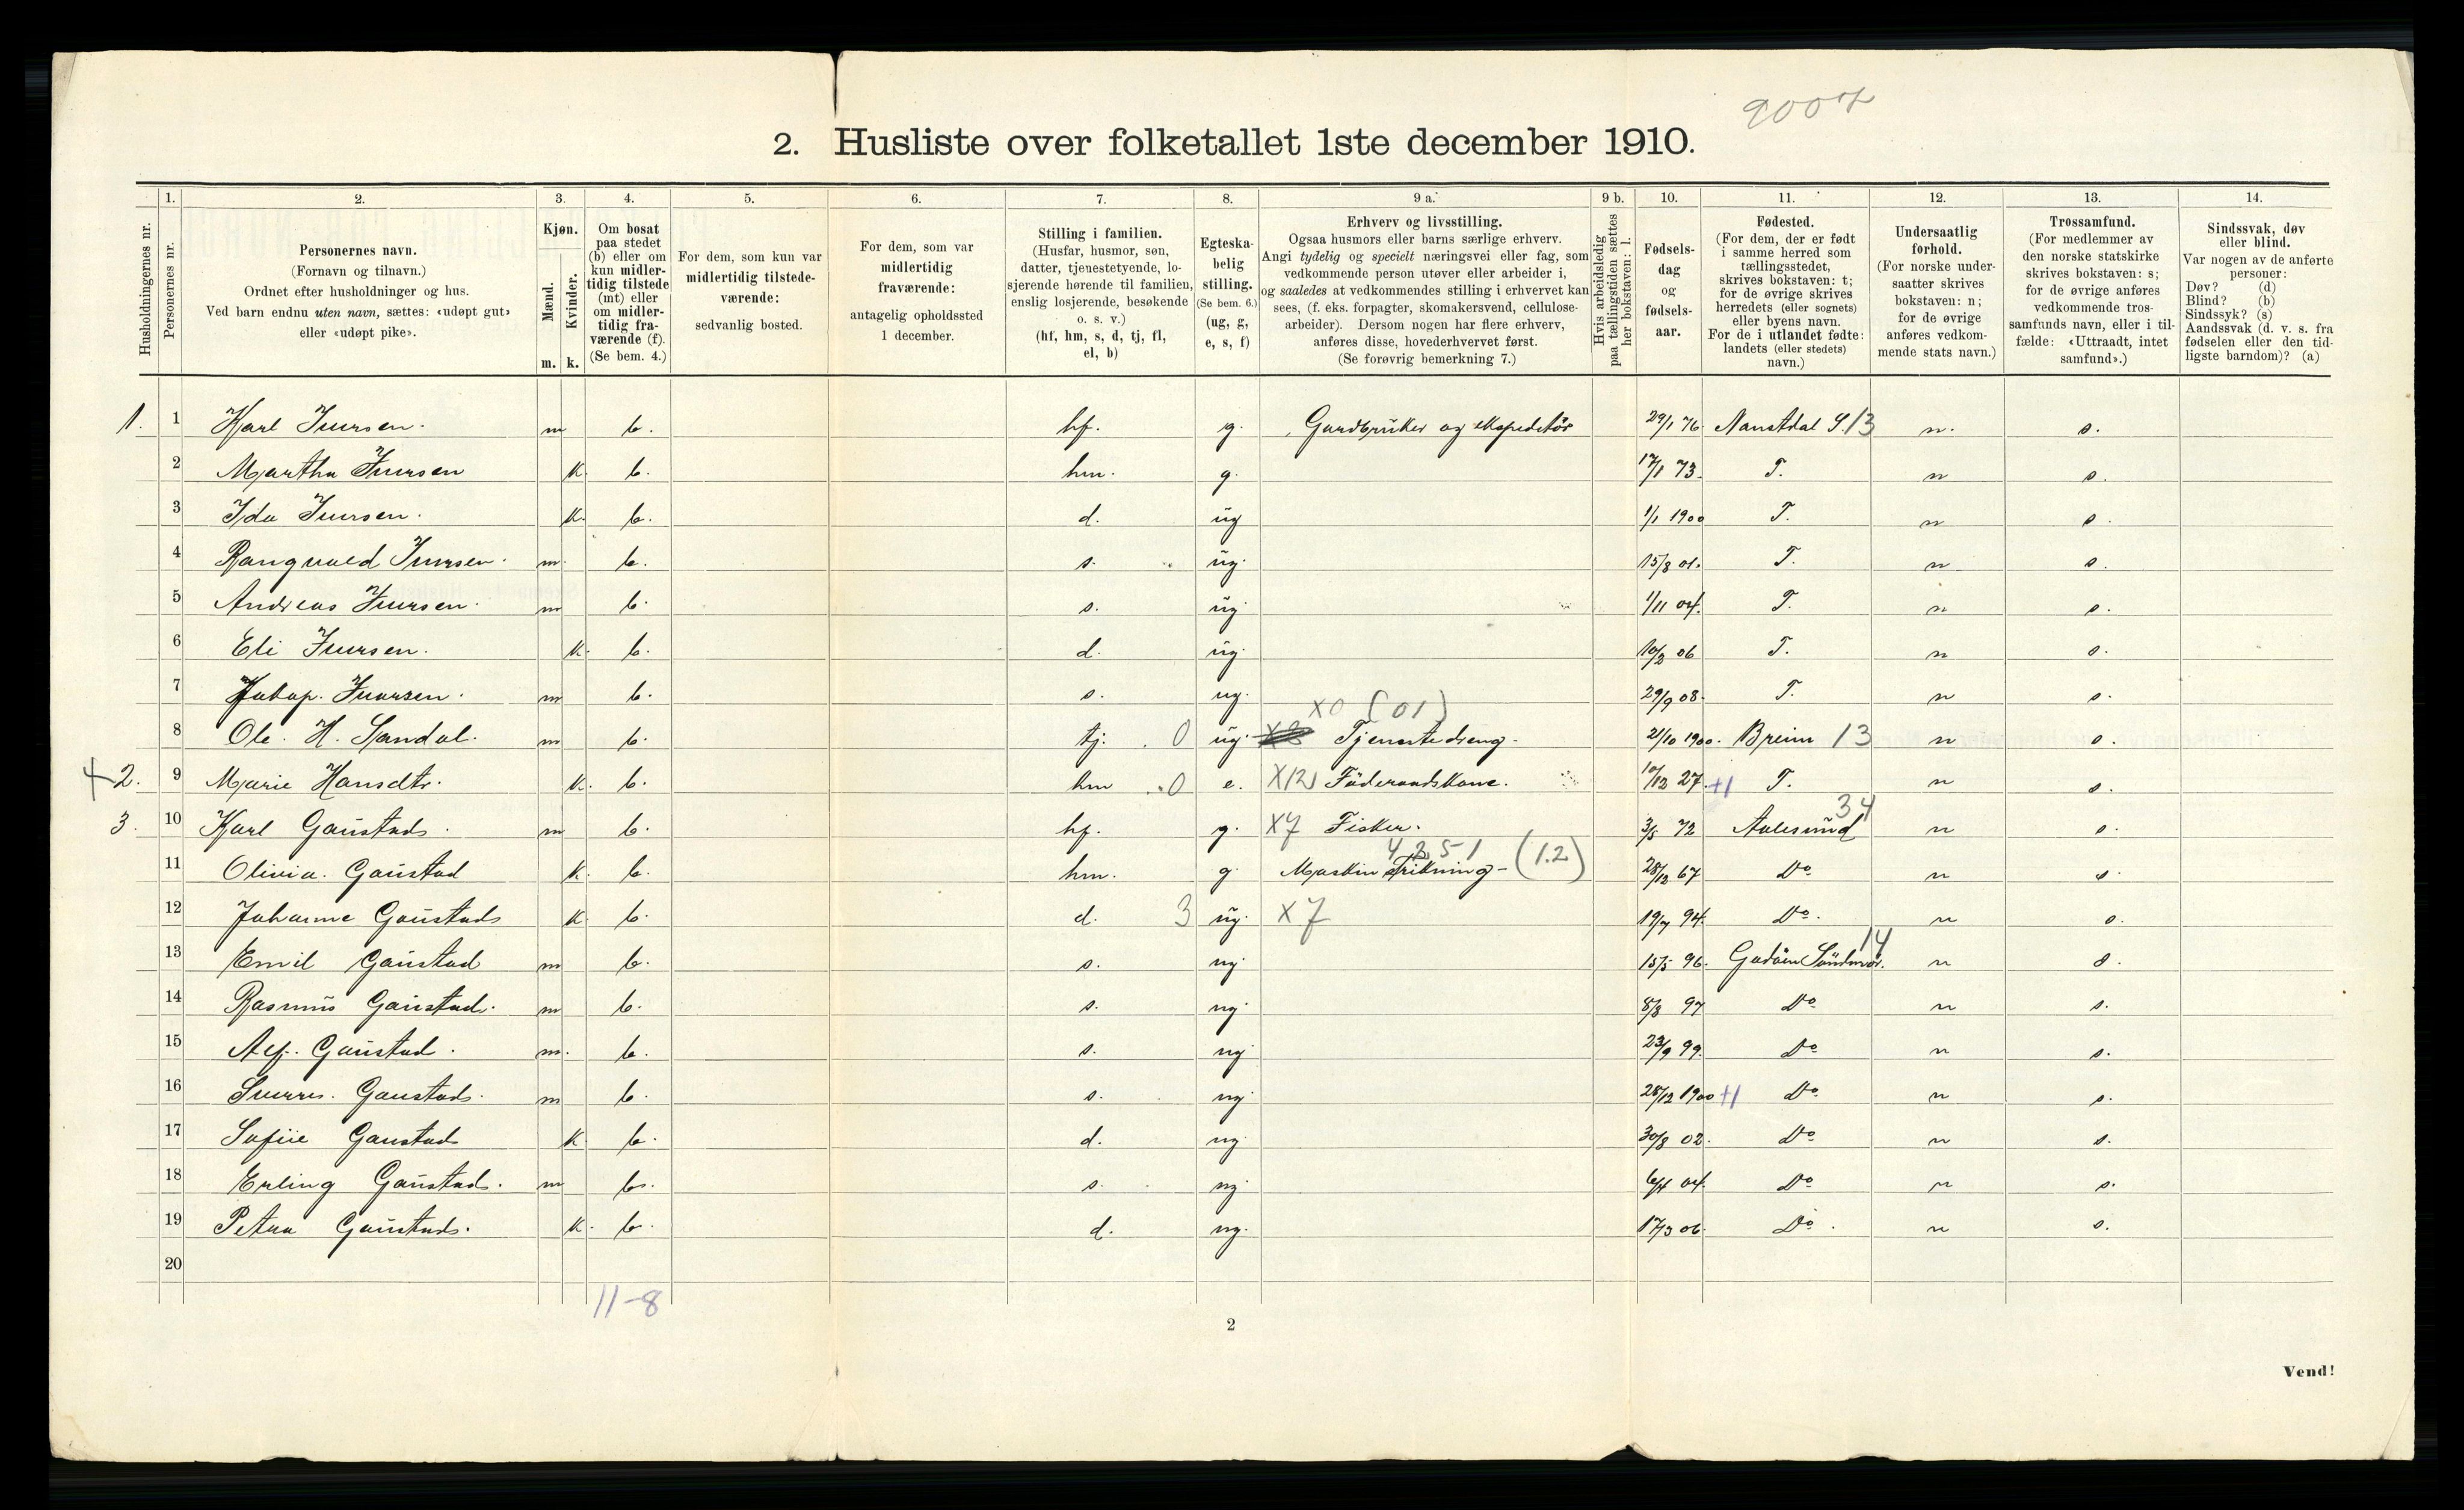 9007
2. Husliste over folketallet 1ste december 1910.
Husholdningernes nr.
1.
Personernes nr.
2.
Personernes navn.
(Fornavn og tilnavn.)
Ordnet efter husholdninger og hus.
Ved barn endnu uten navn, sættes: «udøpt gut»
eller «udøpt pike».
3.
Kjøn.
Mænd.
Kvinder.
m. k.
4.
Om bosat
paa stedet
(b) eller om
kun midler-
tidig tilstede
(mt) eller
om midler-
tidig fra-
værende (f).
(Se bem. 4.)
5.
For dem, som kun var
midlertidig tilstede-
værende:
sedvanlig bosted.
6.
For dem, som var
midlertidig
fraværende:
antagelig opholdssted
1 december.
7.
Stilling i familien.
(Husfar, husmor, søn,
datter, tjenestetyende, lo-
sjerende hørende til familien,
enslig losjerende, besøkende
o. s. v.)
(hf, hm, s, d, tj, fl,
el, b)
8.
Egteska-
belig
stilling.
(Se bem. 6.)
(ug, g,
e, s, f)
9 a.
Erhverv og livsstilling.
Ogsaa husmors eller barns særlige erhverv.
Angi tydelig og specielt næringsvei eller fag, som
vedkommende person utøver eller arbeider i,
og saaledes at vedkommendes stilling i erhvervet kan
sees, (f. eks. forpagter, skomakersvend, cellulose-
arbeider). Dersom nogen har flere erhverv,
anføres disse, hovederhvervet først.
(Se forøvrig bemerkning 7.)
9 b.
Hvis arbeidsledig
paa tællingstiden sættes
her bokstaven: l.
10.
Fødsels-
dag
og
fødsels-
aar.
11.
Fødested.
(For dem, der er født
i samme herred som
tællingsstedet,
skrives bokstaven: t;
for de øvrige skrives
herredets (eller sognets)
eller byens navn.
For de i utlandet fødte:
landets (eller stedets)
navn.)
12.
Undersaatlig
forhold.
(For norske under-
saatter skrives
bokstaven: n;
for de øvrige
anføres vedkom-
mende stats navn.)
13.
Trossamfund.
(For medlemmer av
den norske statskirke
skrives bokstaven: s;
for de øvrige anføres
vedkommende tros-
samfunds navn, eller i til-
fælde: «Uttraadt, intet
samfund».)
14.
Sindssvak, døv
eller blind.
Var nogen av de anførte
personer:
Døv? (d)
Blind? (b)
Sindssyk? (s)
Aandssvak (d. v. s. fra
fødselen eller den tid-
ligste barndom)? (a)
1. 1 Karl Iversen. m b. hf. g. Gardbruker og ekspeditör 29/1 76 Naustdal S. 13 n. s.
2 Martha Iversen k. b. hm. g. 17/1 73. T. n s.
3 Ida Iversen. k. b. d. ug 1/1 1900 T. n s.
4 Rangvald Iversen. m. b. s. ug. 15/8 01. T. n s.
5 Andreas Iversen. m b. s. ug. 1/11 04. T. n s.
6 Eli Iversen. k. b. d. ug. 10/2 06 T. n s.
7 Jakop. Iversen. m b. s. ug. 29/9 08. T. n s.
X0 (01)
8 Ole. H. Sandal. m b. tj. 0 ug. Tjenestedreng. 21/10 1900. Breim 13 n s.
+2. 9 Marie Hansdtr. k. b. hm 0 e. X12) Föderaadskone. 10/12 27. +1 T. n s.
3. 10 Karl Gaustad. m b. hf. g. X7 Fisker. 3/5 72 Aalesund 34 n s.
4251 (1.2)
11 Olivia. Gaustad k. b. hm. g Maskin Strikning- 28/12 67 Do n s.
12 Johanne Gaustad k b. d. 3 ug. X7 19/7 94. Do. n s.
13 Emil Gaustad m b. s. ug. 15/5 96. Godöen Söndmör. 14 n s.
14 Rasmus Gaustad. m b. s. ug. 8/8 97 Do n s.
15 Alf. Gaustad. m. b. s. ug 23/9 99. Do n s.
16 Sverre. Gaustad. m b. s. ug. 28/12 1900 +1 Do. n s.
17 Sofiie Gaustad k. b. d. ug. 30/8 02. Do n s.
18 Erling Gaustad. m b. s. ug. 6/4 04. Do n s.
19 Petra Gaustad. k. b. d. ug. 17/3 06. Do. n s.
20
11-8
2
Vend!